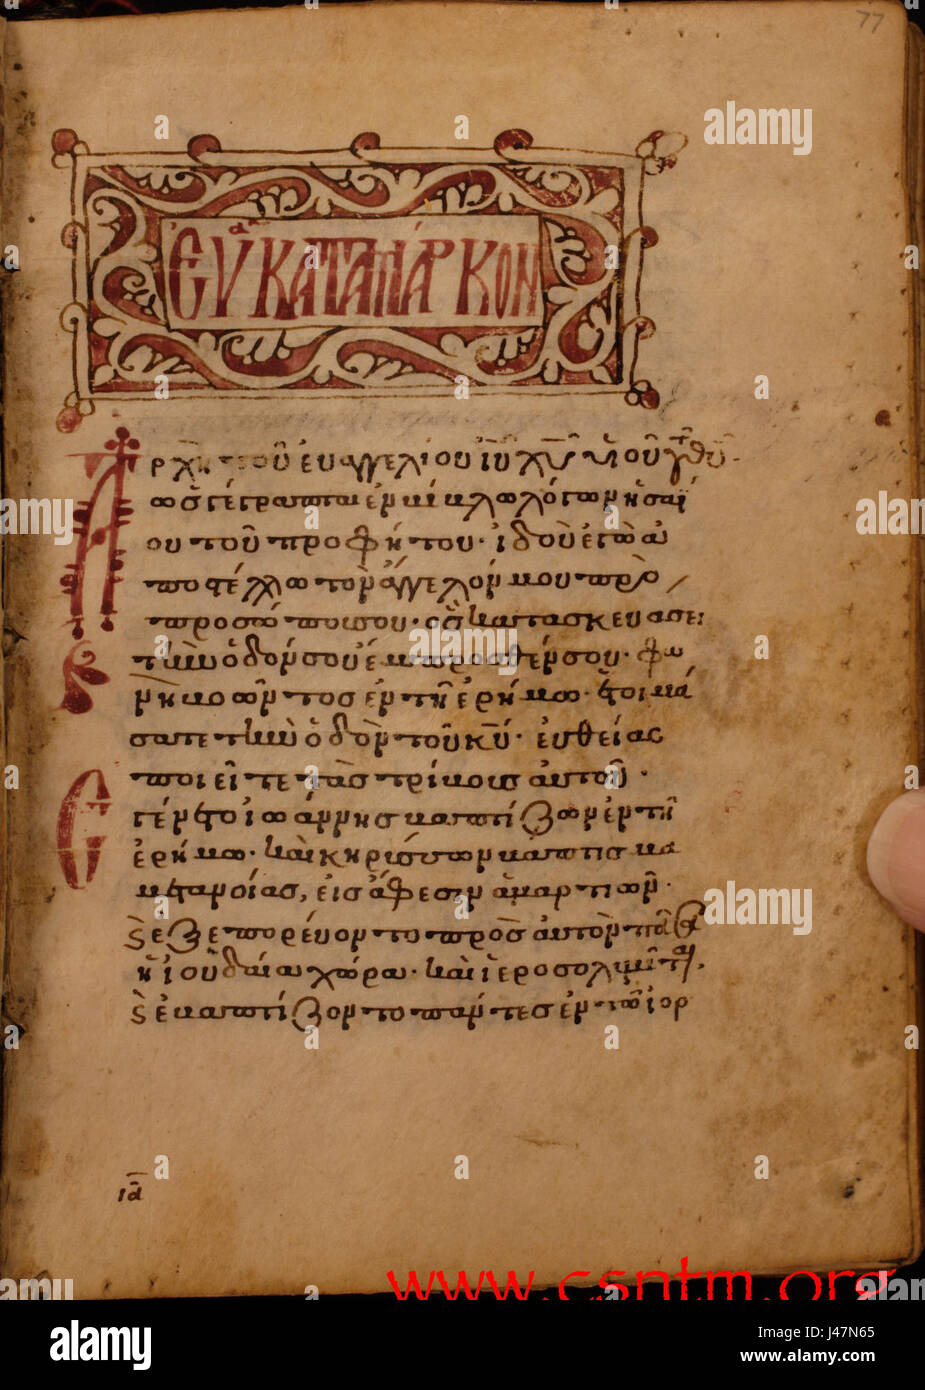 77
ΕΥΑ ΚΑΤΑ ΜΑΡΚΟΝ
Ἀρχὴ τοῦ εὐαγγελίου ιυ χυ υἱοῦ τοῦ θυ
ὡς γέγραπται ἐν
ου τοῦ προφήτου· ἰδοὺ ἐγὼ ἀ
ποστέλλω τὸν ἄγγελόν μου πρὸ
προσώπου σου· ὃς κατασκευάσει
τὴν ὁδόν σου ἔμπροσθέν σου· φω
νὴ βοῶντος ἐν τῇ ἐρήμω· ἑτοιμά
σατε τὴν ὁδὸν κυ· εὐθείας
ποιεῖτε τὰς τρίβους αὐτοῦ·
Ἐγένετο ἰωάννης βαπτίζων ἐν τῇ
ἐρήμω· καὶ κηρύσσων βάπτισμα
μετανοίας, εἰς ἄφεσιν ἁμαρτιῶν·
καὶ ἐξεπορεύοντο πρὸς αὐτὸν πᾶσα
ἡ ἰουδαία χώρα· καὶ ἱεροσολυμῖται,
καὶ ἐβαπτίζοντο πάντες ἐν τῶ ἰορ
ια
www.csntm.org
alamy
Image ID: J47N65
www.alamy.com